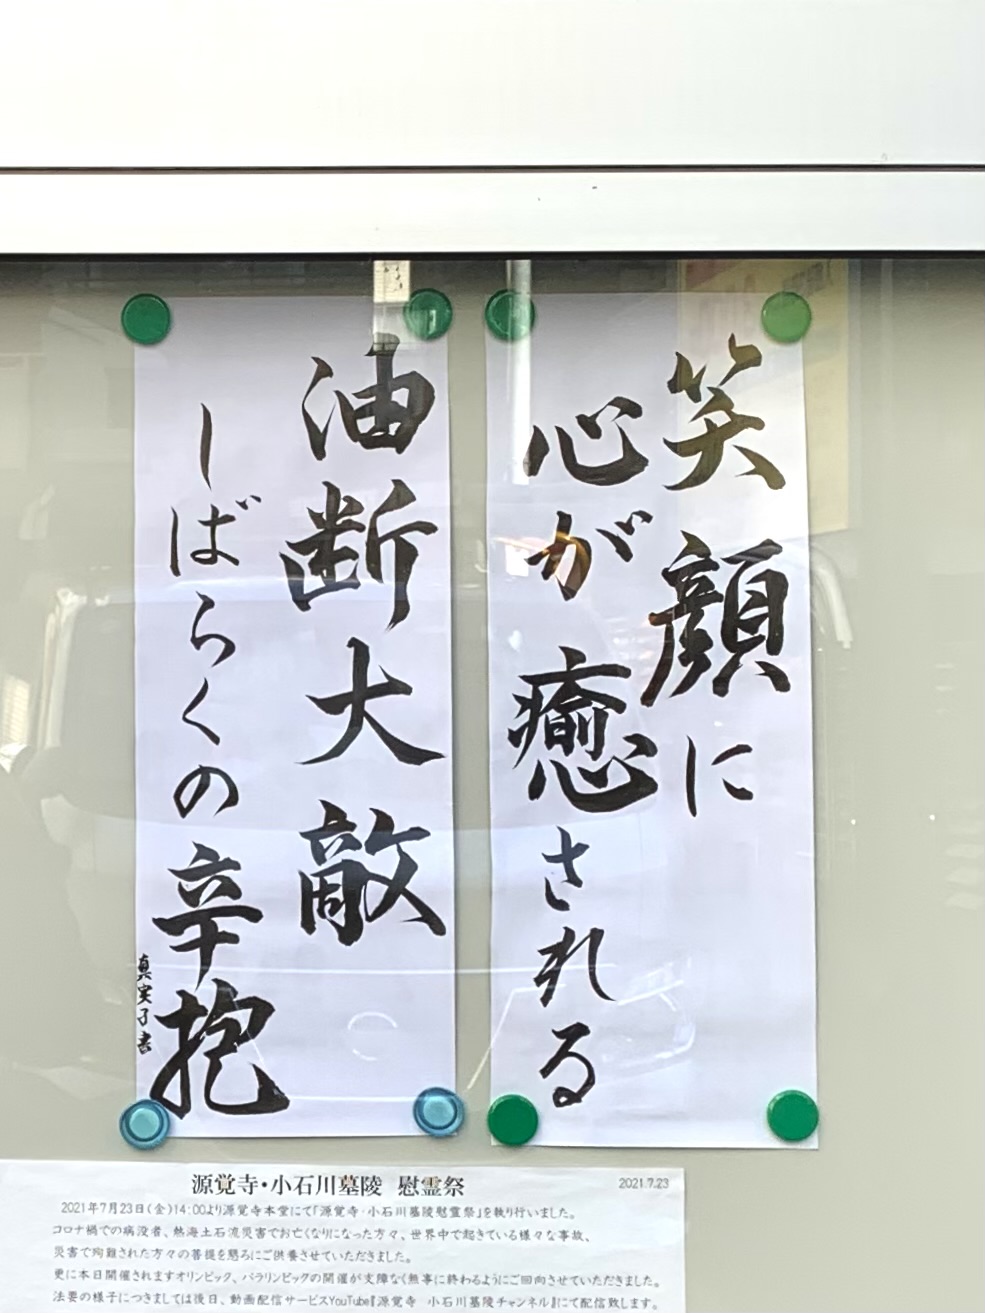 笑顔に
心が癒される
油断大敵
しばらくの辛抱
真実子書
源覚寺・小石川墓陵 慰霊祭
2021.7.23
2021年7月23日(金)14:00より源覚寺本堂にて「源覚寺・小石川墓陵慰霊祭」を執り行いました。
コロナ禍での病没者、熱海土石流災害でお亡くなりになった方々、世界中で起きている様々な事故、
災害で殉難された方々の菩提を懇ろにご供養させていただきました。
更に本日開催されますオリンピック、パラリンピックの開催が支障なく無事に終わるようにご回向させていただきました。
法要の様子につきましては後日、動画配信サービスYouTube『源覚寺 小石川墓陵チャンネル』にて配信致します。